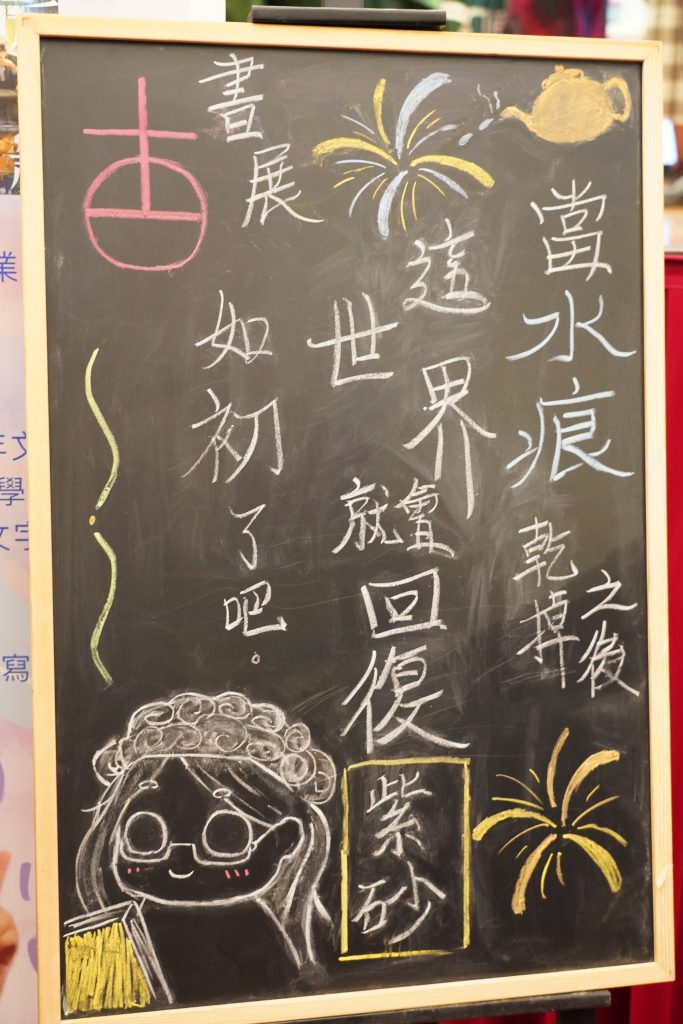 當水痕
乾掉
之後
這
世界
就會
回復
紫砂
如初了吧。
書展
古
業
學
寫